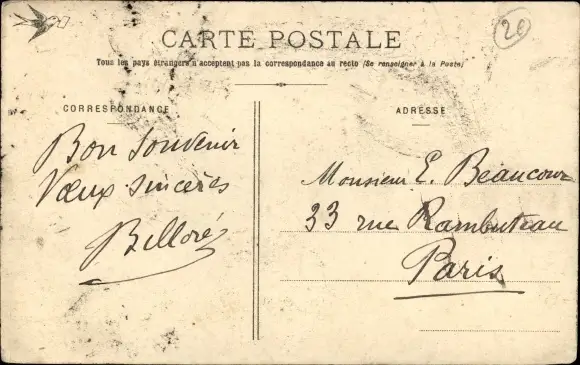 20
CARTE POSTALE
Tous les pays étrangers n'acceptent pas la correspondance au recto (Se renseigner à la Poste)
CORRESPONDANCE
Bon Souvenir
Vœux sincères
Billoré
ADRESSE
Monsieur E. Beaucour
33 rue Rambuteau
Paris